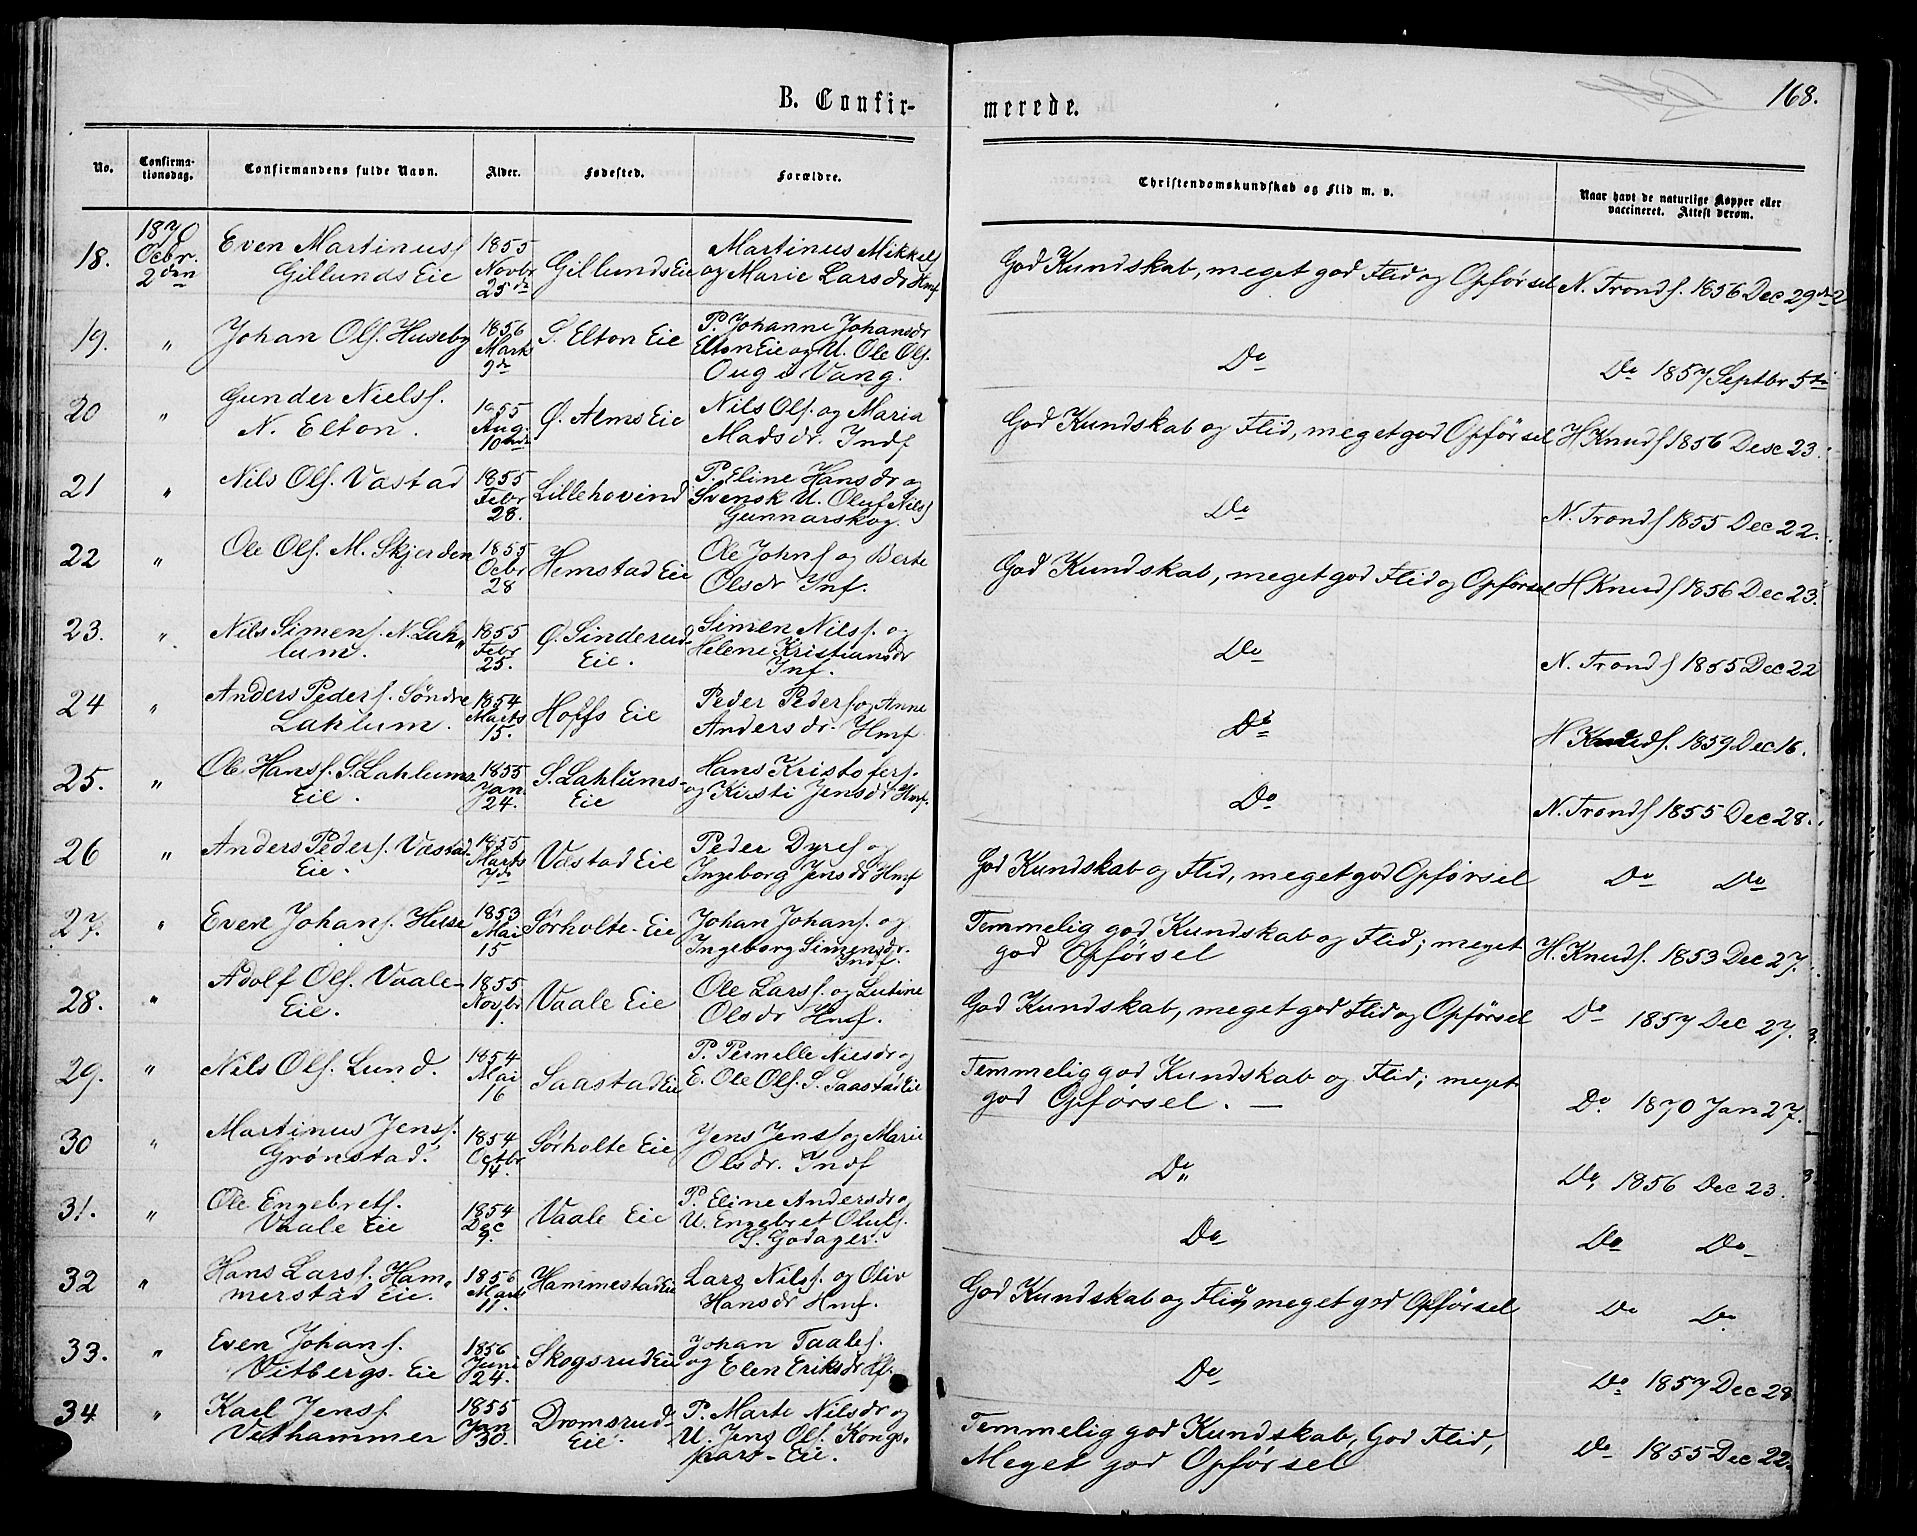 168.
B. Confir-
merede.
No.
Confirma-
tionsdag.
Confirmandens fulde Navn.
Alder.
Fødested.
Forældre.
Christendomskundskab og Flid m. v.
Naar havt de naturlige Kopper eller
vaccineret. Attest derom.
18.
1870
Ocbr.
2den
Even Martinusf
Gillunds Eie
1855
Novbr
25de
Gillunds Eie
Martinus Mikkelsf
og Marie Larsdr Hmf
God Kundskab, meget god Flid og Opførsel
N. Trondf. 1856 Dec 29de
19.
"
Johan Olf. Huseby
1856
Marts
9de
S. Elton Eie
P. Johanne Johansdr
Elton Eie og U. Ole Olf.
Oug i Vang.
Do
Do 1857 Septbr 5te
20
"
Gunder Nielsf.
N. Elton.
1855
Aug.
10nde
Ø. Alms Eie
Nils Olf. og Maria
Madsdr. Indf
God Kundskab og Flid, meget god Opførsel
H Knudf 1856 Desc 23.
21
"
Nils Olf. Vastad
1855
Febr
28.
Lillehovind
P. Eline Hansdr og
Svensk U. Oluf Nilsf
Gunnarskog.
Do
N. Trondf 1855 Dec 22.
22
"
Ole Olf. M. Skjerden
1855
Ocbr
28
Hemstad Eie
Ole Johnf og Berte
Olsdr Inf.
God Kundskab, meget god Flid og Opførsel
H Knudf 1856 Dec 23.
23.
"
Nils Simenf. N. Lah„
lum.
1855
Febr
25.
Ø. Sinderud
Eie.
Simen Nilsf. og
Helene Kristiansdr
Inf.
Do
N. Trondf 1855 Dec 22
24
"
Anders Pederf. Søndre
Lahlum.
1854
Marts
15.
Hoffs Eie
Peder Pederf og Anne
Andersdr. Hmf
Do
H Knudf. 1859 Dec 16.
25.
"
Ole Hansf. S. Lahlums
Eie.
1855
Jan.
24.
S. Lahlums-
Eie
Hans Kristoferf.
og Kirsti Jensdr Hmf.
Do
N. Trondf 1855 Dec 28.
26
"
Anders Pederf. Vastad
Eie.
1855
Marts
7de
Vastad Eie
Peder Dyref og
Ingeborg Jensdr Hmf
God Kundskab og Flid, meget god Opførsel
Do Do
27.
"
Even Johanf. Helse
1853
Mai
15
Sørholte-Eie
Johan Johanf. og
Ingeborg Simensdr.
Indf.
Temmelig god Kundskab og Flid; meget
god Opførsel
H. Knudf. 1853 Dec 27.
28.
"
Adolf Olf. Vaale-
Eie.
1855
Novbr
1.
Vaale Eie
Ole Larsf. og Lutine
Olsdr Hmf.
God Kundskab, meget god Flid og Opførsel
Do 1857 Dec 27.
29.
"
Nils Olf. Lund.
1854
Mai
16
Saastad Eie
P. Pernelle Nielsdr og
E. Ole Olf. S. Saastad Eie
Temmelig god Kundskab og Flid; meget
god Opførsel. —
Do. 1870 Jan 27.
30
"
Martinus Jensf.
Grønstad.
1854
Octbr
14.
Sørholte Eie
Jens Jensf og Marie
Olsdr. Indf
Do
Do, 1856 Dec 23.
31.
"
Ole Engebretf.
Vaale Eie
1854
Dec
9.
Vaale Eie
P. Eline Andersdr og
U. Engebret Olufs.
S. Godager.
Do
Do Do
32
"
Hans Larsf. Ham„
merstad Eie.
1856
Marts
11.
Hammestad Eie
Lars Nilsf. og Oliv
Hansdr Hmf.
God Kundskab og Flid, meget god Opførsel
Do Do
33.
"
Even Johanf.
Vitbergs-Eie
1856
Juni
24.
Skogsrud Eie
Johan Taalef.
og Elen Eriksdr Hf.
Do
Do 1857 Dec 28
34
"
Karl Jensf.
Vethammer
1855
Jan
30.
Dromsrud-
Eie.
P. Marte Nilsdr og
U. Jens Olf. Kongs-
pars-Eie.
Temmelig god Kundskab, God Flid,
Meget god Opførsel
Do 1855 Dec 22.